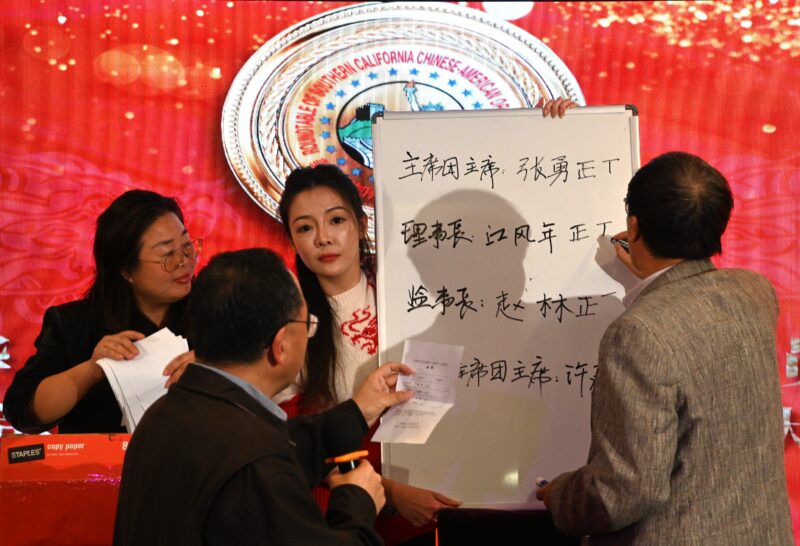 ROUNDTABLE OF SOUTHERN CALIFORNIA CHINESE-AMERICAN
主席团主席: 张勇 正丅
理事長: 江风年 正丅
监事長: 赵林 正
主席团主席: 许
STAPLES copy paper